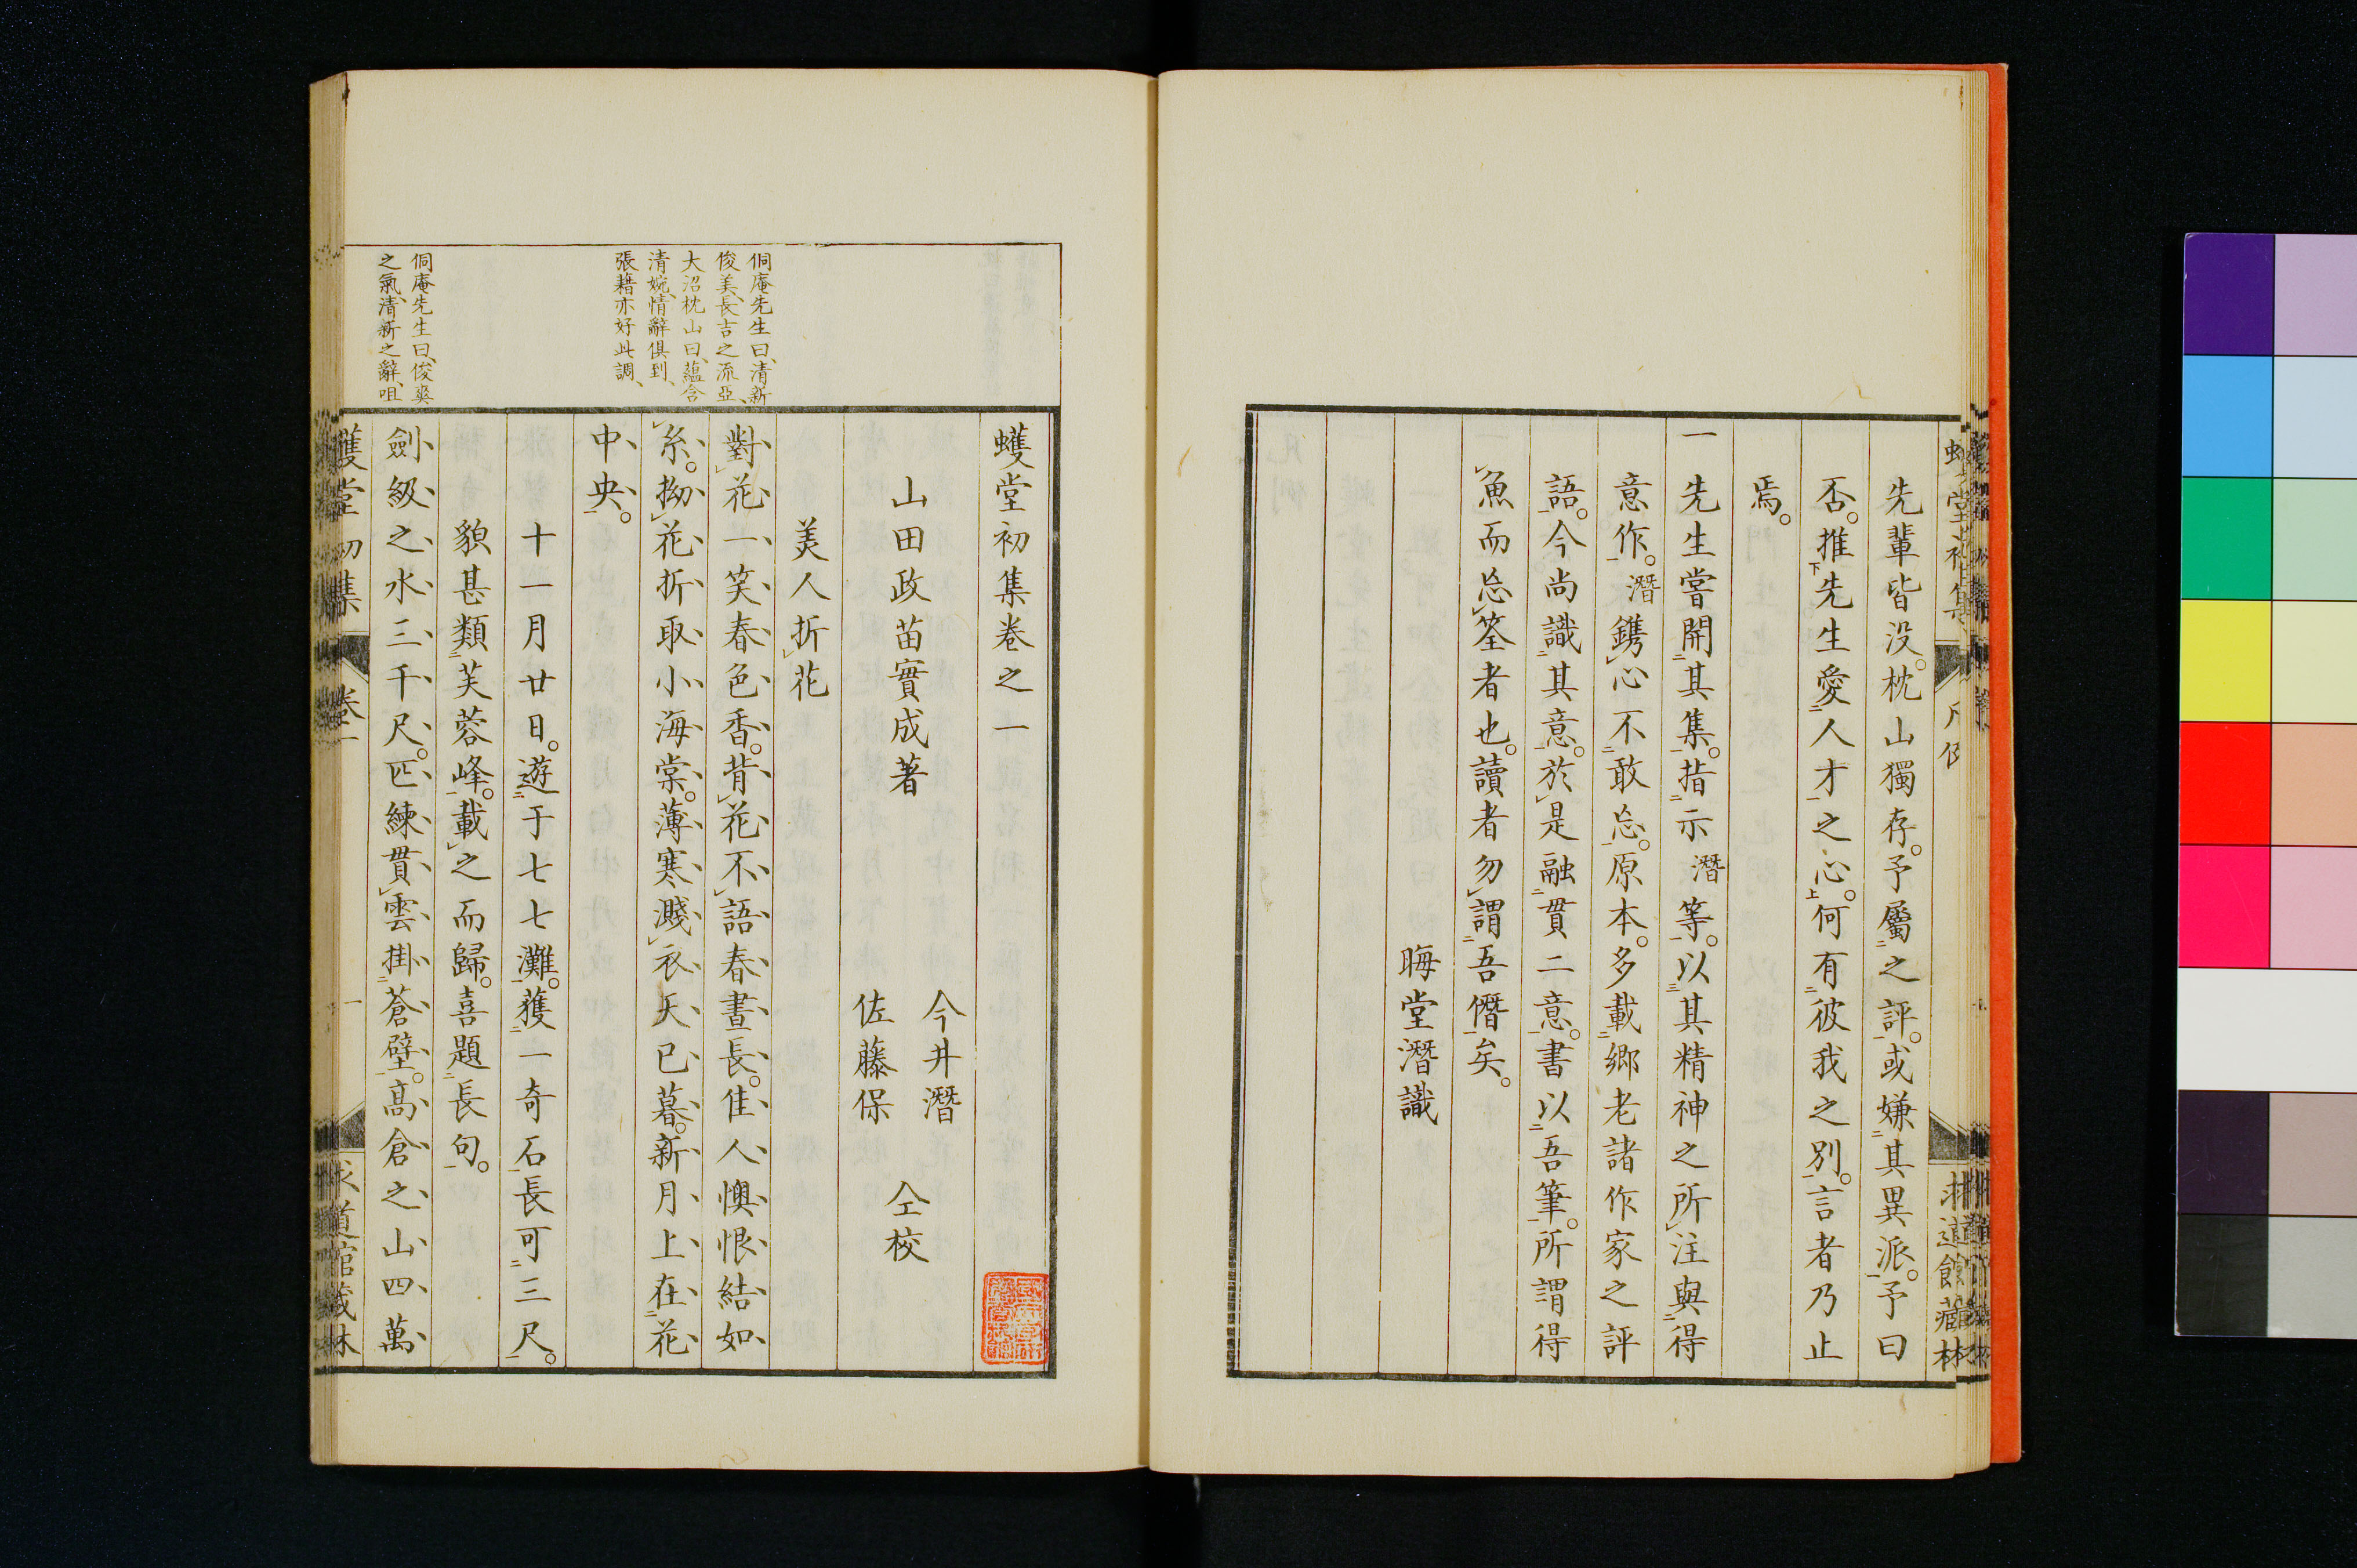 先輩皆没。枕山獨存。予屬之評。或嫌其異派。予曰
否。推先生愛人才之心。何有彼我之別。言者乃止
焉。
一先生嘗開其集。指示潛等。以其精神之所注與得
意作。潛鐫心不敢忘。原本多載鄉老諸作家之評
語。今尚識其意。於是融貫二意。書以吾筆。所謂得
魚而忘筌者也。讀者勿謂吾僭矣。
晦堂潛識
蠖堂初集卷之一
山田政苗實成著
今井潛
佐藤保
仝校
美人折花
對花一笑春色香。背花不語春晝長。佳人懊恨結如
糸。拗花折取小海棠。薄寒濺衣天已暮。新月上在花
中央。
十一月廿日。遊于七七灘。獲一奇石長可三尺。
貌甚類芙蓉峰。載之而歸。喜題長句。
劍級之水三千尺。匹練貫雲掛蒼壁。高倉之山四萬
侗庵先生曰、清新
俊美、長吉之流亞、
大沼枕山曰、蘊含
清婉、情辭俱到、
張藉亦好此調、
侗庵先生曰、俊爽
之氣、清新之辭、咀
蠖堂初集
卷一
一